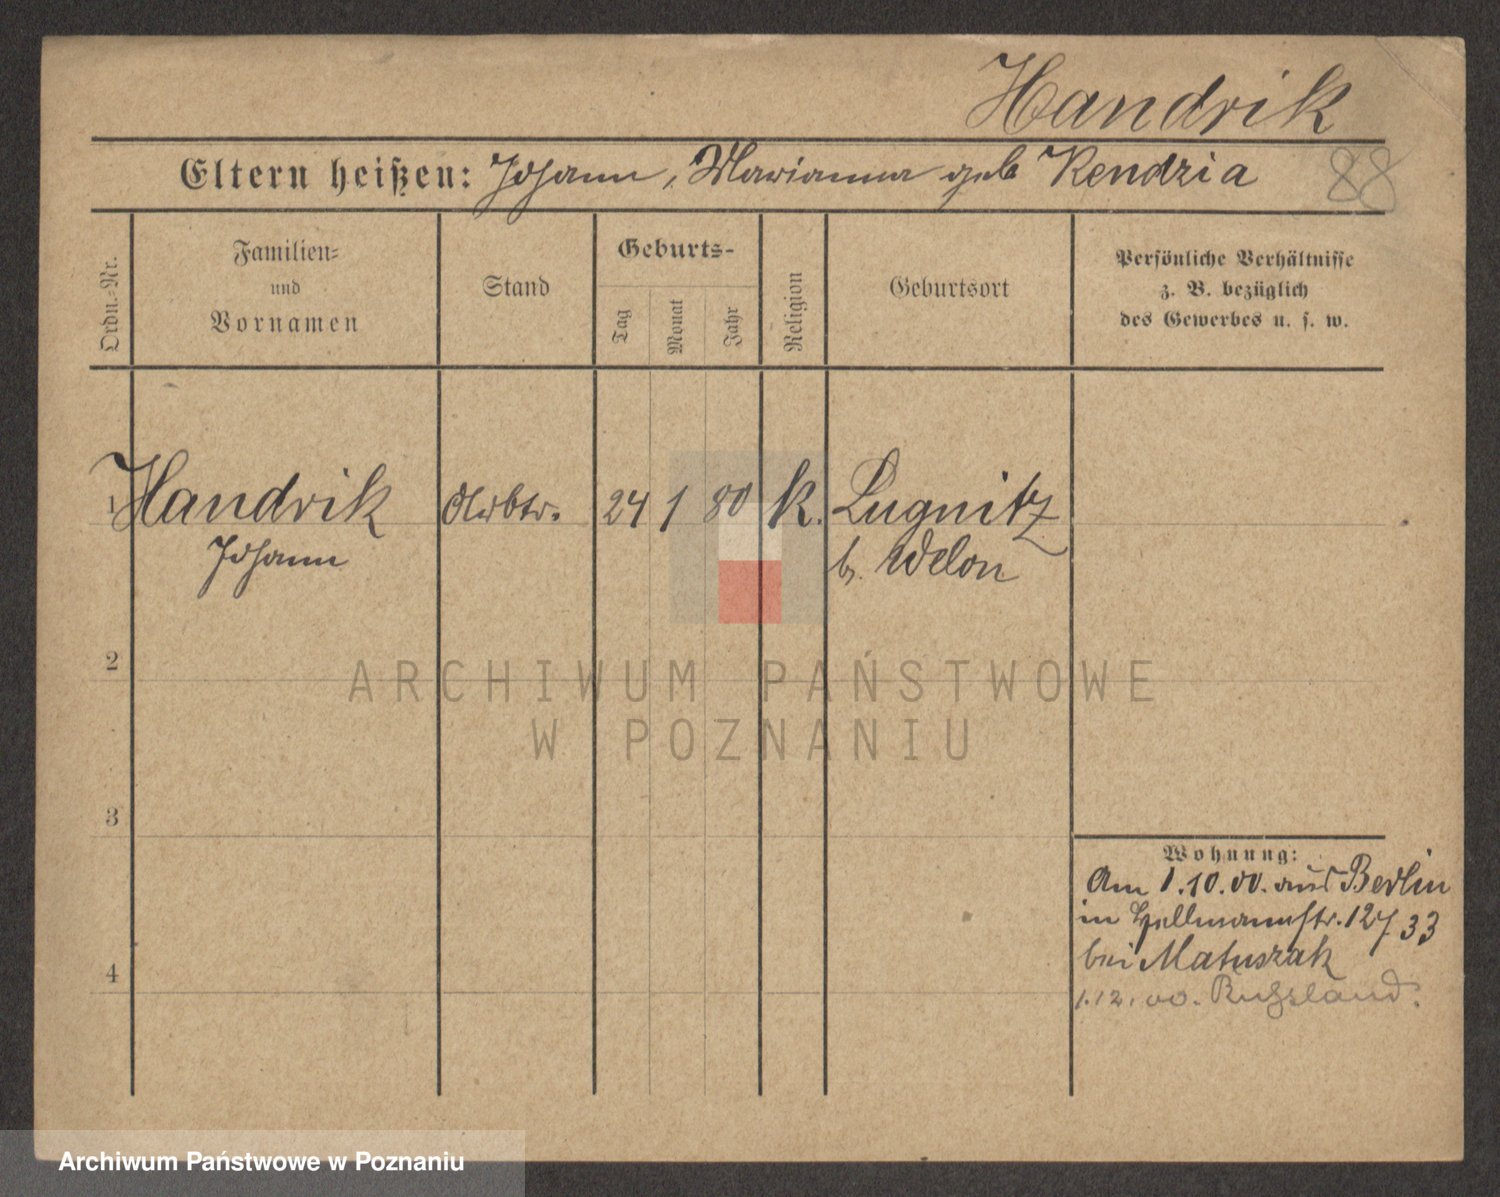 Handrik
Eltern heißen: Johann, Marianna geb Kendzia
88
Ordn.-Nr.
Familien-
und
Vornamen
Stand
Geburts-
Tag
Monat
Jahr
Religion
Geburtsort
Persönliche Verhältnisse
z. B. bezüglich
des Gewerbes u. s. w.
1 Handrik Arbtr. 24 1 80 k. Lugnitz
Johann b. Welon
2
ARCHIWUM PAŃSTWOWE
W POZNANIU
3
Wohnung:
Am 1.10.00. aus Berlin
in 33
bei Matuszak
4
1.12.00. Russland.
Archiwum Państwowe w Poznaniu